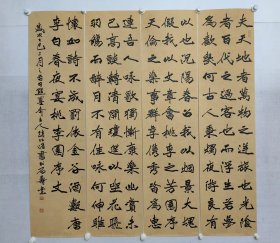 夫天地者萬物之逆旅也光陰
者百代之過客也而浮生若夢
為歡幾何古人秉燭夜遊良有
以也況陽春召我以煙景大塊
假我以文章會桃李之芳園序
天倫之樂事群季俊秀皆為惠
連吾人詠歌獨慚康樂幽賞未
已高談轉清開瓊筵以坐花飛
羽觴而醉月不有佳詠何伸雅
懷如詩不成罰依金谷酒數唐
李白春夜宴桃李園序文